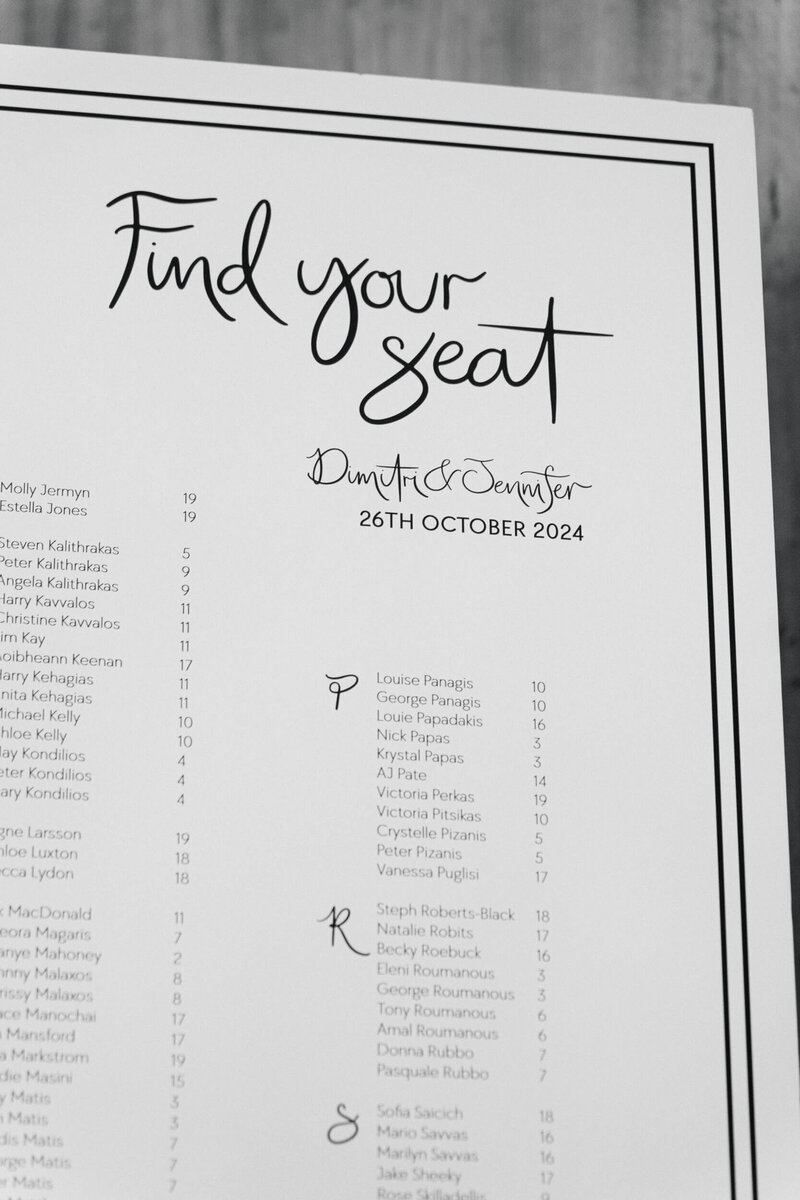 Find your
seat
Dimitri & Jennifer
26TH OCTOBER 2024
Molly Jermyn 19
Estella Jones 19
Steven Kalithrakas 5
Peter Kalithrakas 9
Angela Kalithrakas 9
Harry Kavvalos 11
Christine Kavvalos 11
im Kay 11
oibheann Keenan 17
arry Kehagias 11
nita Kehagias 11
ichael Kelly 10
hloe Kelly 10
lay Kondilios 4
eter Kondilios 4
ary Kondilios 4
gne Larsson 19
hloe Luxton 18
cca Lydon 18
MacDonald 11
eora Magaris 7
anye Mahoney 2
nny Malaxos 8
rissy Malaxos 8
ace Manochai 17
Mansford 17
a Markstrom 19
die Masini 15
y Matis 3
Matis 3
dis Matis 7
rge Matis 7
er Matis 7
P
Louise Panagis 10
George Panagis 10
Louie Papadakis 16
Nick Papas 3
Krystal Papas 3
AJ Pate 14
Victoria Perkas 19
Victoria Pitsikas 10
Crystelle Pizanis 5
Peter Pizanis 5
Vanessa Puglisi 17
R
Steph Roberts-Black 18
Natalie Robits 17
Becky Roebuck 16
Eleni Roumanous 3
George Roumanous 3
Tony Roumanous 6
Amal Roumanous 6
Donna Rubbo 7
Pasquale Rubbo 7
S
Sofia Saicich 18
Mario Savvas 16
Marilyn Savvas 16
Jake Sheeky 17
Rose Skilladellis 9